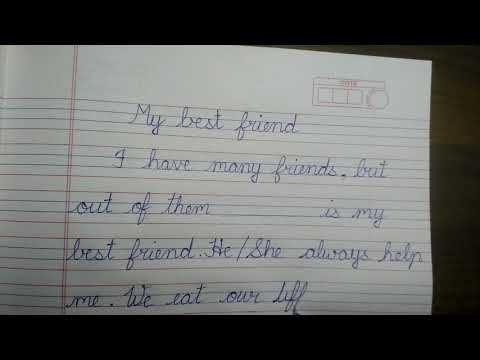 My best friend
I have many friends, but
out of them is my
best friend. He/She always help
me. We eat our tiff